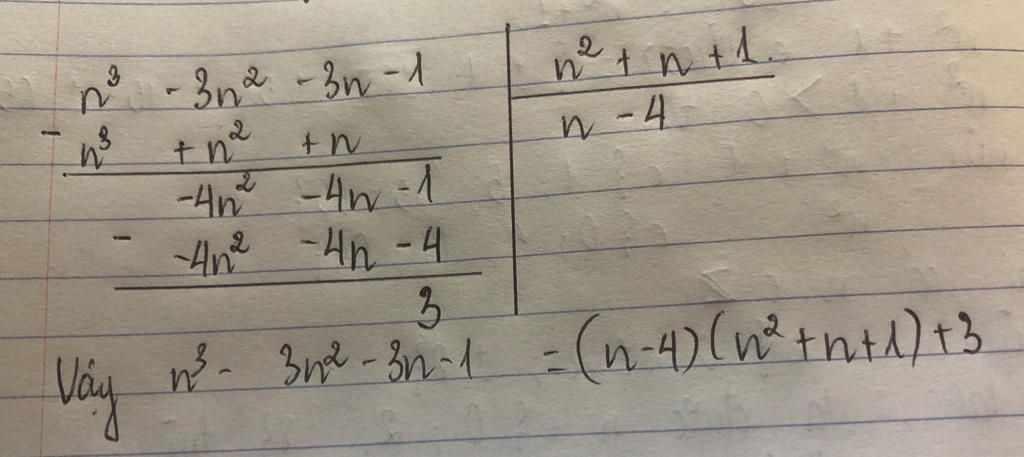 n³ - 3n² - 3n - 1 | n² + n + 1.
- n³ + n² + n | n - 4
-4n² - 4n - 1
- -4n² - 4n - 4
3
Vậy n³ - 3n² - 3n - 1 = (n-4)(n² + n + 1) + 3